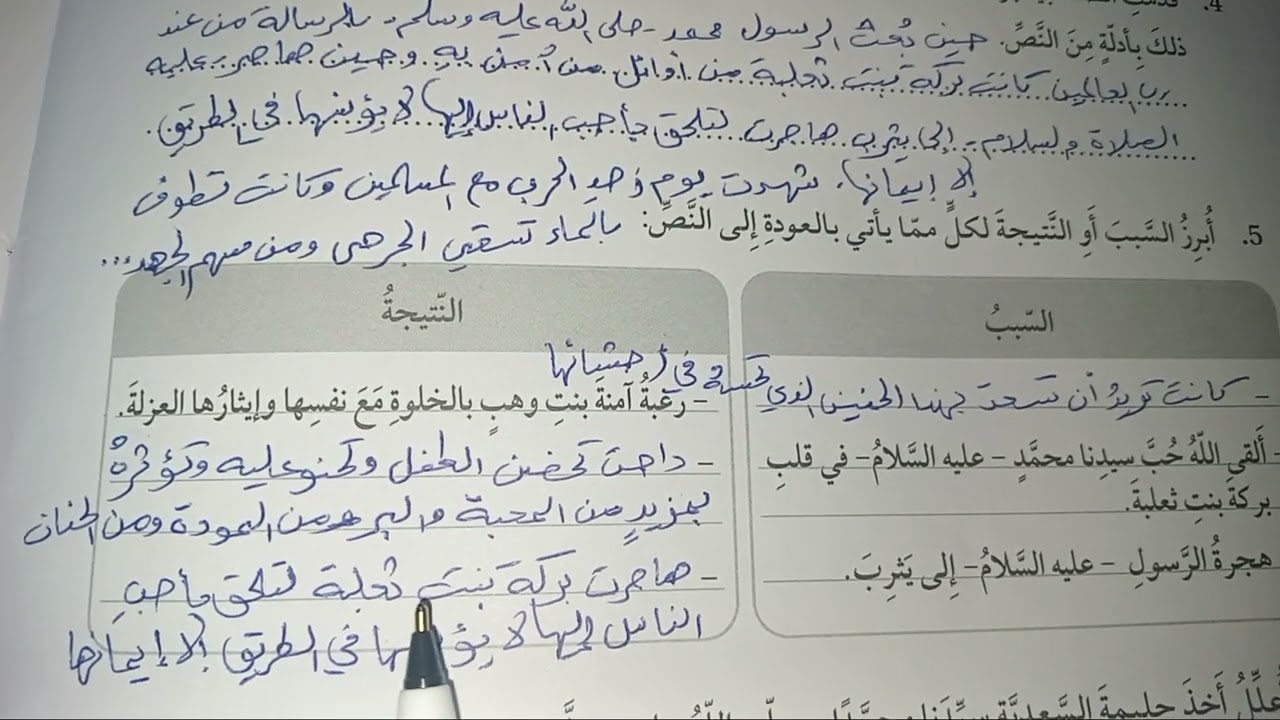 4.
ذلكَ بِأدلّةٍ مِنَ النَّصِّ. حين بُعث الرسول محمد - صلى الله عليه وسلم - بالرسالة من عند
رب العالمين كانت بركة بنت ثعلبة من أوائل من آمن به وحين هاجر عليه
الصلاة والسلام - إلى يثرب هاجرت لتلحق بأحب الناس إليها لا يؤنسها في الطريق
إلا إيمانها. شهدت يوم أحد الحرب مع المسلمين وكانت تطوف
5. أُبرِزُ السَّببَ أَوِ النَّتيجةَ لكلٍّ ممّا يأتي بالعودةِ إلى النَّصِّ: بالماء تسقي الجرحى ومن مسهم الجهد...
السّببُ
النّتيجةُ
- كانت تريدُ أن تسعد بهذا الجنين الذي تحسه في أحشائها
- رغبةُ آمنةَ بنتِ وهبٍ بالخلوةِ مَعَ نفسِها وإيثارُها العزلةَ.
- ألقى اللّهُ حُبَّ سيدِنا محمَّدٍ - عليه السَّلامُ - في قلبِ
بركةَ بنتِ ثعلبةَ.
- راحت تحضن الطفل وتحنو عليه وتؤثرهُ
بمزيدٍ من المحبة والبر ومن المودة ومن الحنان
هجرةُ الرَّسولِ - عليه السَّلامُ - إلى يَثرِبَ.
- هاجرت بركة بنت ثعلبة لتلحق بأحبِ
الناس إليها لا يؤنسها في الطريق إلا إيمانها
أُعلِّلُ أَخذَ حليمةَ السَّعديَّةِ سيِّدَنا محمَّدًا